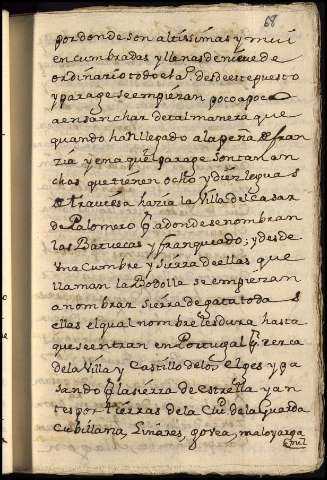 68
por donde son altissimas y mui
encumbradas y llenas de nieve de
ordinario todo el aº. desde este puesto
y parage se empiezan poco a poco
a ensanchar de tal manera que
quando han llegado a la peña de fran
zia y en aquel parage son tan an
chas que tienen ocho y diez leguas
de traviesa hazia la Villa del Casar
de Palomero a donde se nombran
las Batuecas y franqueado; y desde
una Cumbre y Sierra de ellas que
llaman la Bodolla se empiezan
a nombrar sierra de gata todas
ellas el qual nombre les dura hasta
que se entran en Portugal zerca
de la Villa y Castillo de los Elges y pa
sando la sierra de Estrella y an
tes por tierras de la Ciud de la Guarda
Cubillana, Linares, govea, maloyarga